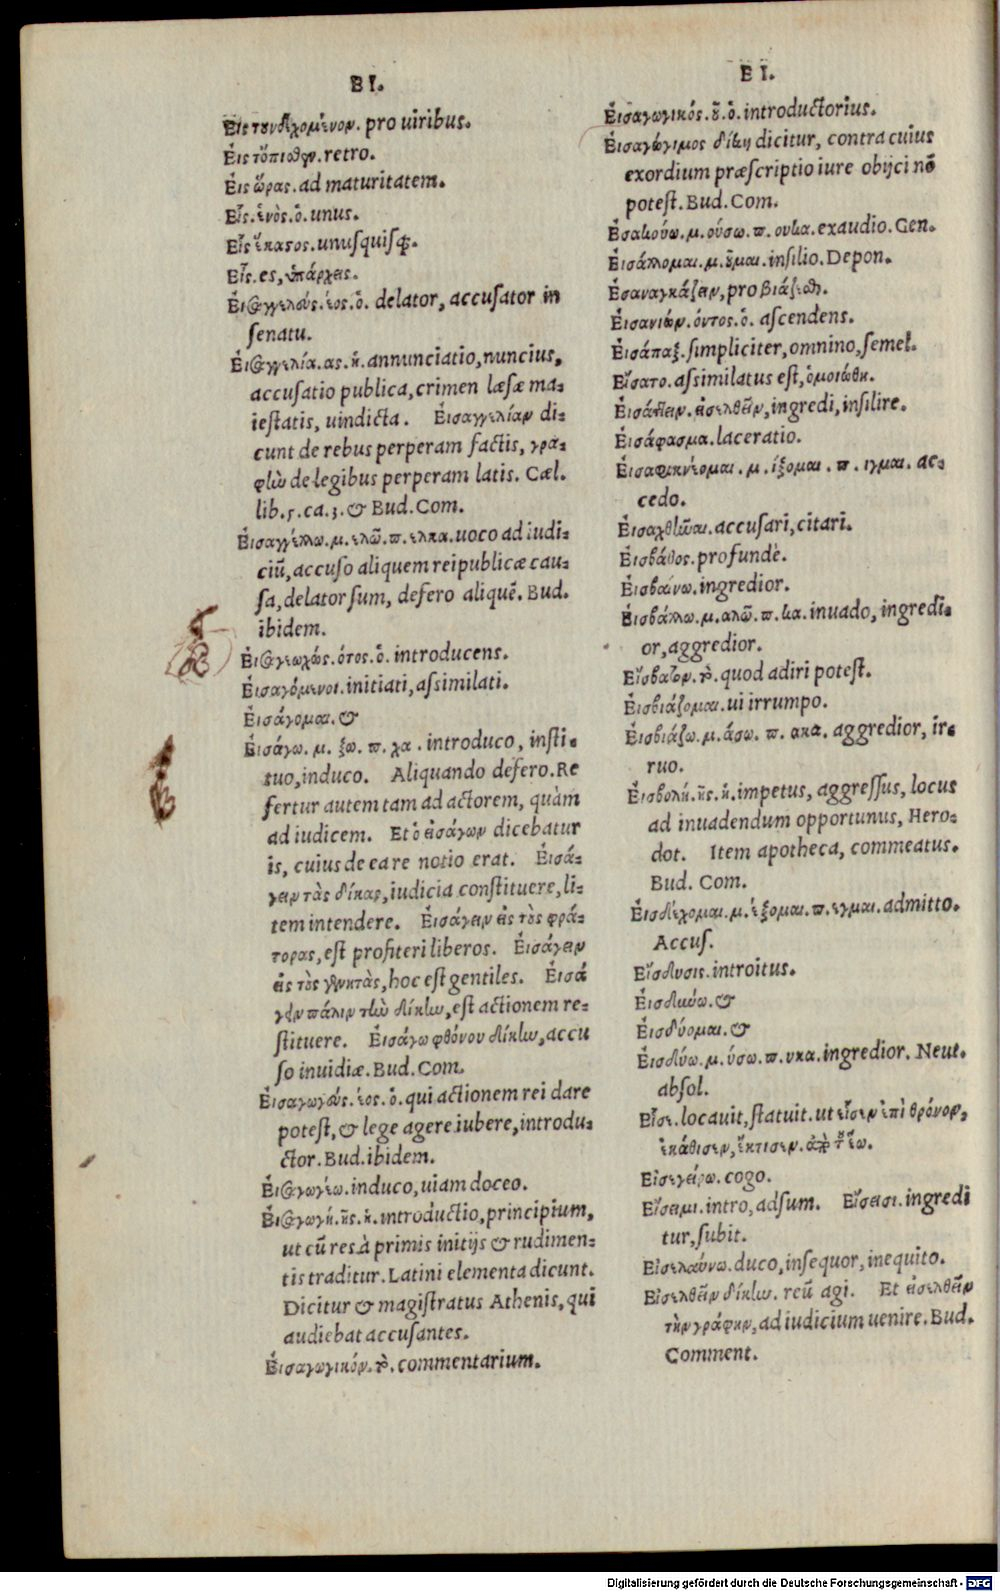 EI.
Εἰς τοὐνδεχόμενον. pro uiribus.
Εἰς τὄπιαθεν. retro.
Εἰς ὥρας. ad maturitatem.
Εἷς. ἑνὸς. ὁ. unus.
Εἷς ἕκαςος. unusquisq;.
Εἶς. es, ὑπάρχεις.
Εἰσαγγελεύς. έος. ὁ. delator, accusator in
senatu.
Εἰσαγγελία. ας. ἡ. annunciatio, nuncius,
accusatio publica, crimen læsæ ma-
iestatis, uindicta. Εἰσαγγελίαν di-
cunt de rebus perperam factis, γρα-
φὴν de legibus perperam latis. Cæl.
lib. 5. ca. 3. & Bud. Com.
Εἰσαγγέλλω. μ. ελῶ. π. ελκα. uoco ad iudi-
ciū, accuso aliquem reipublicæ cau-
sa, delator sum, defero aliquē. Bud.
ibidem.
Εἰσαγειοχώς. ότος. ὁ. introducens.
Εἰσαγόμενοι. initiati, assimilati.
Εἰσάγομαι. &
Εἰσάγω. μ. ξω. π. χα. introduco, insti-
tuo, induco. Aliquando defero. Re
fertur autem tam ad actorem, quàm
ad iudicem. Et ὁ εἰσάγων dicebatur
is, cuius de ea re notio erat. Εἰσά-
γειν τὰς δίκας, iudicia constituere, li-
tem intendere. Εἰσάγειν εἰς τοὺς φρά-
τορας, est profiteri liberos. Εἰσάγειν
εἰς τοὺς γεννητὰς, hoc est gentiles. Εἰσά
γειν πάλιν τὴν δίκην, est actionem re-
stituere. Εἰσάγω φθόνου δίκην, accu
so inuidiæ. Bud. Com.
Εἰσαγωγεύς. έος. ὁ. qui actionem rei dare
potest, & lege agere iubere, introdu-
ctor. Bud. ibidem.
Εἰσαγωγέω. induco, uiam doceo.
Εἰσαγωγή. ῆς. ἡ. introductio, principium,
ut cū res à primis initijs & rudimen-
tis traditur. Latini elementa dicunt.
Dicitur & magistratus Athenis, qui
audiebat accusantes.
Εἰσαγωγικόν. τὸ. commentarium.
EI.
Εἰσαγωγικός. οῦ. ὁ. introductorius.
Εἰσαγώγιμος δίκη dicitur, contra cuius
exordium præscriptio iure obijci nō
potest. Bud. Com.
Εἰσακούω. μ. ούσω. π. ουκα. exaudio. Gen.
Εἰσάλλομαι. μ. οῦμαι. insilio. Depon.
Εἰσαναγκάζειν, pro βιάζεσθαι.
Εἰσανιών. όντος. ὁ. ascendens.
Εἰσάπαξ. simpliciter, omnino, semel.
Εἴσατο. assimilatus est, ὁμοιώθη.
Εἰσάπειν. εἰσελθεῖν, ingredi, insilire.
Εἰσάφασμα. laceratio.
Εἰσαφικνέομαι. μ. ίξομαι. π. ιγμαι. ac-
cedo.
Εἰσαχθῆναι. accusari, citari.
Εἰσβάθος. profundè.
Εἰσβαίνω. ingredior.
Εἰσβάλλω. μ. αλῶ. π. κα. inuado, ingredi-
or, aggredior.
Εἴσβατον. τὸ. quod adiri potest.
Εἰσβιάζομαι. ui irrumpo.
Εἰσβιάζω. μ. άσω. π. ακα. aggredior, ir-
ruo.
Εἰσβολή. ῆς. ἡ. impetus, aggressus, locus
ad inuadendum opportunus, Hero-
dot. Item apotheca, commeatus.
Bud. Com.
Εἰσδέχομαι. μ. έξομαι. π. εγμαι. admitto.
Accus.
Εἴσδυσις. introitus.
Εἰσδικνύω. &
Εἰσδύομαι. &
Εἰσδύω. μ. ύσω. π. υκα. ingredior. Neut.
absol.
Εἷσε. locauit, statuit. ut εἷσεν ἐπὶ θρόνον,
ἐκάθισεν, ἔκτισεν. ἀπὸ τοῦ ἕω.
Εἰσεγείρω. cogo.
Εἴσειμι. intro, adsum. Εἴσεισι. ingredi
tur, subit.
Εἰσελαύνω. duco, insequor, inequito.
Εἰσελθεῖν δίκην. reū agi. Et εἰσελθεῖν
τὴν γράφην, ad iudicium uenire. Bud.
Comment.
Digitalisierung gefördert durch die Deutsche Forschungsgemeinschaft - DFG